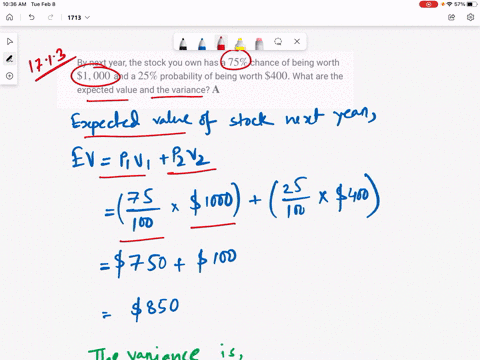 10:36 AM Tue Feb 8
57%
1713
17.1.3
By next year, the stock you own has a 75% chance of being worth
$1,000 and a 25% probability of being worth $400. What are the
expected value and the variance? A
Expected value of stock next year,
EV = P1V1 + P2V2
= (75/100 × $1000) + (25/100 × $400)
= $750 + $100
= $850
The variance is,